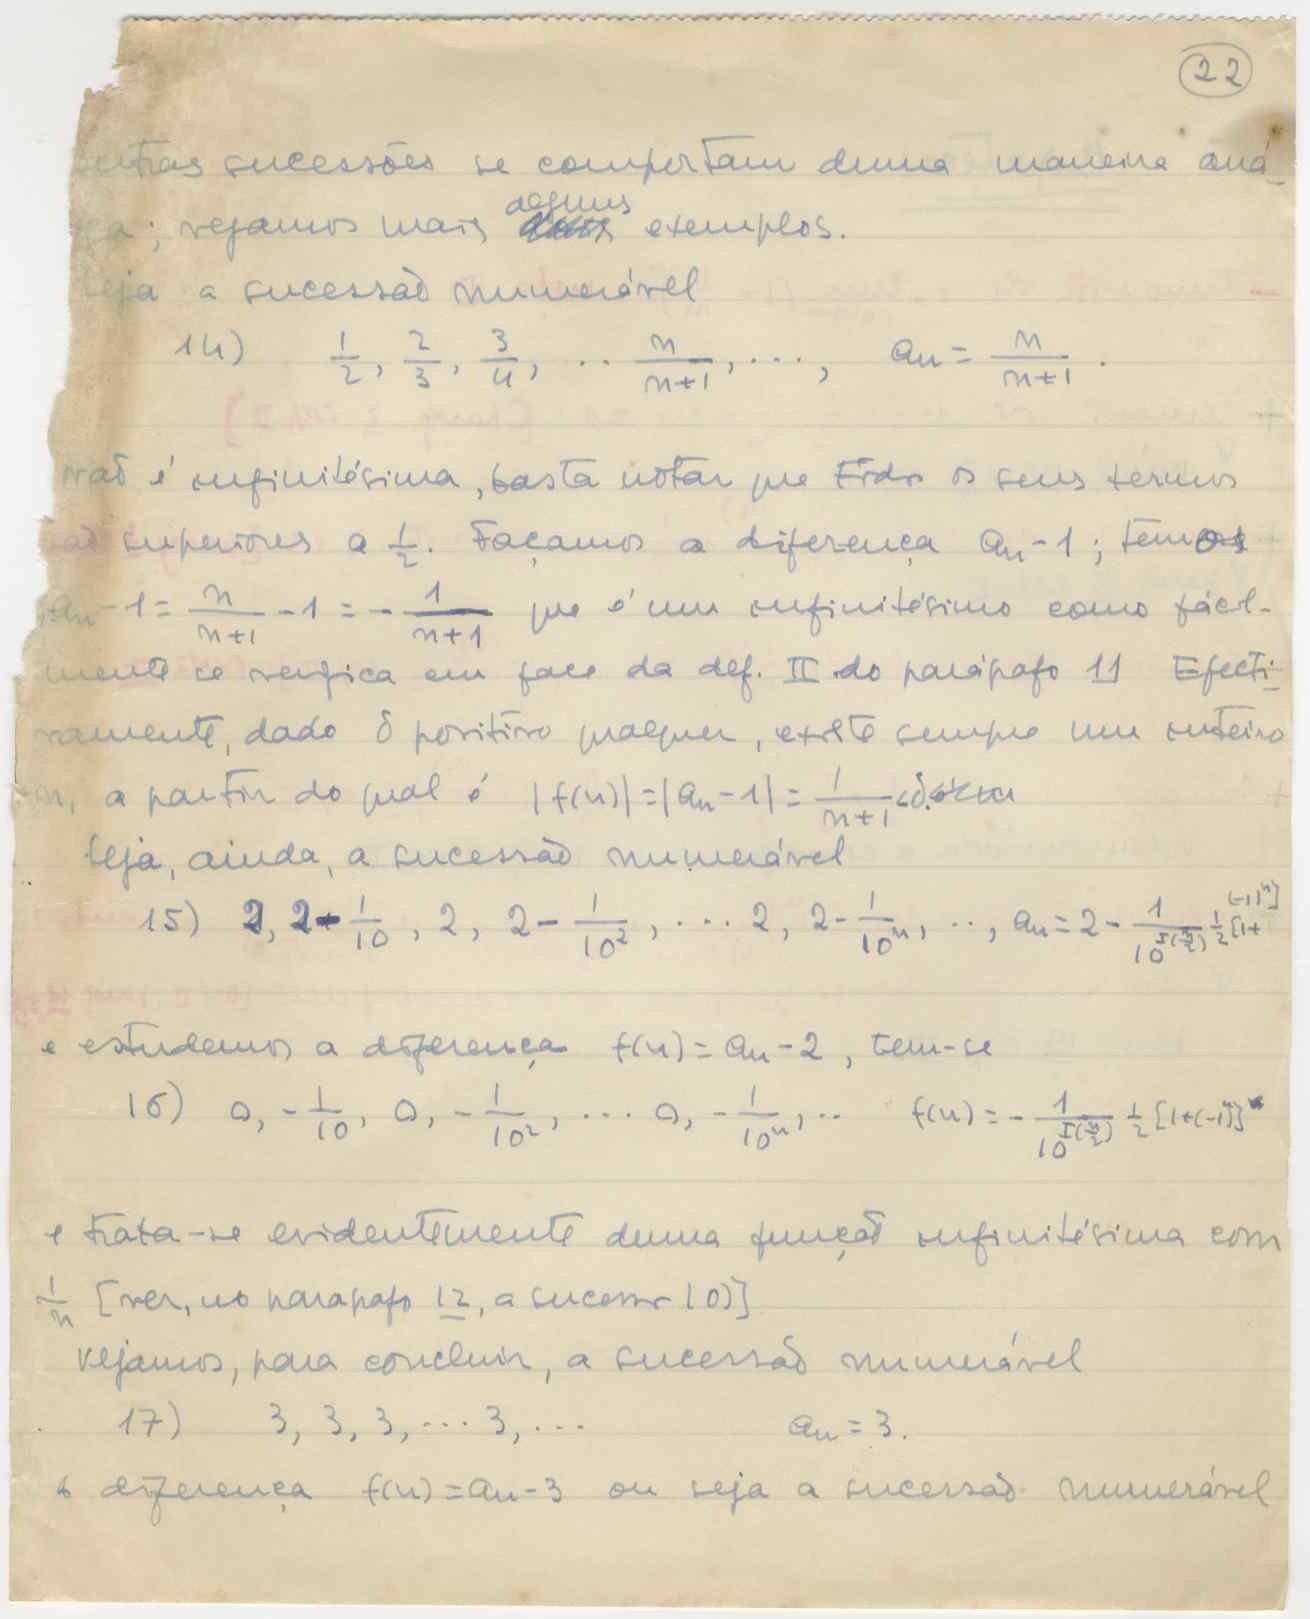 22
outras sucessões se comportam duma maneira aná-
ga; vejamos mais alguns exemplos.
seja a sucessão numerável
14) 1/2, 2/3, 3/4, ·· n/n+1, ···, an = n/n+1 .
não é infinitésima, basta notar que todos os seus termos
são superiores a 1/2. Façamos a diferença an - 1; temos
an - 1 = n/n+1 - 1 = - 1/n+1 que é um infinitésimo como fácil-
mente se verifica em face da def. II do parágrafo 11 Efecti-
vamente, dado δ positivo qualquer, existe sempre um inteiro
n, a partir do qual é |f(n)| = |an - 1| = 1/n+1 < δ.
Seja, ainda, a sucessão numerável
15) 2, 2 - 1/10, 2, 2 - 1/10², ··· 2, 2 - 1/10ⁿ, ··, an = 2 - 1/10^I(n/2) 1/2 [1+(-1)ⁿ]
e estudemos a diferença f(n) = an - 2, tem-se
16) 0, - 1/10, 0, - 1/10², ··· 0, - 1/10ⁿ, ·· f(n) = - 1/10^I(n/2) 1/2 [1+(-1)ⁿ]
e trata-se evidentemente duma função infinitésima com
1/n [ver, no parágrafo 12, a sucessão 10)]
Vejamos, para concluir, a sucessão numerável
17) 3, 3, 3, ··· 3, ··· an = 3.
a diferença f(n) = an - 3 ou seja a sucessão numerável